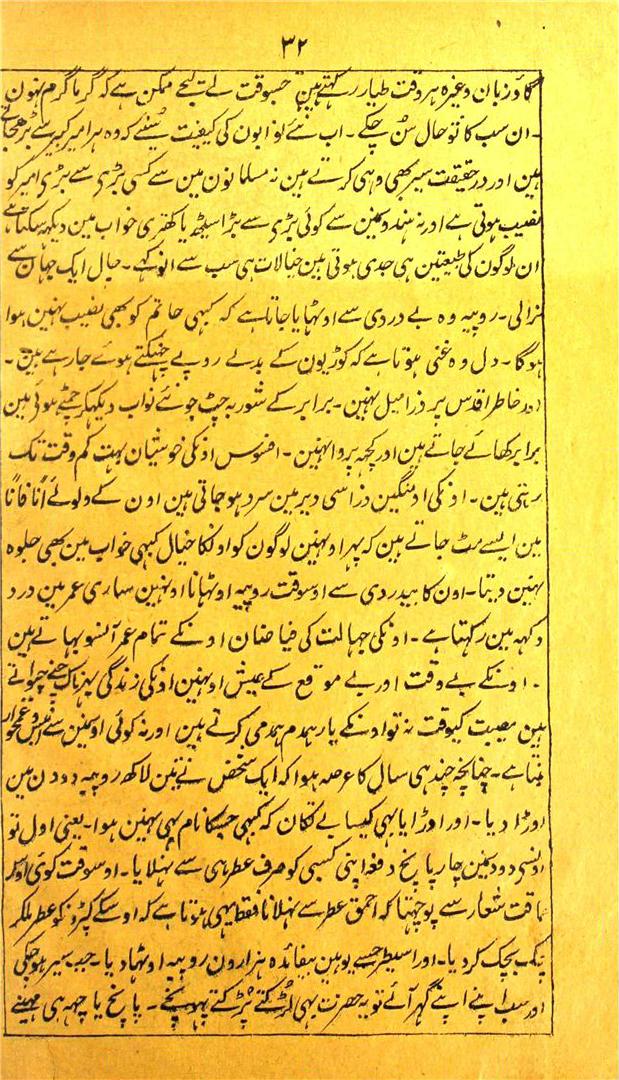 ۳۲
گاؤزبان وغیرہ ہر وقت طیار رکہتے ہین جسوقت لے لیجے ممکن ہے کہ گرما گرم نہون
۔ ان سب کا تو حال سن چکے ۔ اب نئے نوابون کی کیفیت سنئے کہ وہ ہر امیر کبیر سے بڑھجاتے
ہین اور درحقیقت سیر بھی وہی کرتے ہین نہ مسلمانون مین سے کسی بڑی سے بڑی امیر کو
نصیب ہوتی ہے اور نہ ہندؤنمین سے کوئی بڑی سے بڑا سیٹھ یا کھتری خواب مین دیکہہ سکتا ہے
ان لوگون کی طبیعتین ہی جدی ہوتی ہین خیالات ہی سب سے انوکہے ۔ چال ایک جہان سے
نرالی ۔ روپیہ وہ بے دردی سے اوٹہایا جاتا ہے کہ کبہی حاتم کو بھی نصیب نہین ہوا
ہوگا ۔ دل وہ غنی ہوتا ہے کہ کوڑیون کے بدلے روپے پھنکتے ہوے جا رہے ہین ۔
اور خاطر اقدس پر ذرا میل نہین ۔ برابر کے شوربہ چٹ چونے نواب دیکہکر چمٹے ہوئی ہین
برابر کھائے جاتے ہین اور کچہہ پروا نہین ۔ افسوس اونکی خوشیان بہت کم وقت تک
رہتی ہین ۔ اونکی اومنگین ذرا سی دیر مین سرد ہو جاتی ہین اون کے ولولے آناً فاناً
مین ایسے مٹ جاتے ہین کہ پہر اونہین لوگون کو اونکا خیال کبہی خواب مین بھی جلوہ
نہین دیتا ۔ اون کا بیدردی سے اوسوقت روپیہ اوٹہانا اونہین ساری عمر مین درد
دکہہ مین رکہتا ہے ۔ اونکی جہالت کی فیاضیان اونکے تمام عمر آنسو بہاتے ہین
۔ اونکے بے وقت اور بے موقع کے عیش اونہین اونکی زندگی بہر ناک چنے چبواتے
ہین مصیبت کیوقت نہ تو اونکے یار ہمدم ہمدمی کرتے ہین اور نہ کوئی اونمین سے مونس و غمخوار
بنتا ہے ۔ چنانچہ چند ہی سال کا عرصہ ہوا کہ ایک شخص نے تین لاکھ روپیہ دو دن مین
اوڑا دیا ۔ اور اوڑایا بہی کیسا بے تکان کہ کبہی جسکا نام بہی نہین ہوا ۔ یعنی اول تو
اونسی دو دنمین چار پانچ دفعہ اپنی کسبی کو صرف عطر ہی سے نہلایا ۔ اوسوقت کوئی اوس
حماقت شعار سے پوچہتا کہ احمق عطر سے نہلانا فقط یہی ہوتا ہے کہ اوسکے کپڑونکو عطر ملکر
چک بچک کر دیا ۔ اور اسیطرحسے یونہین بیفائدہ ہزارون روپیہ اوٹہا دیا ۔ جب سیر ہو چکی
اور سب اپنے اپنے گہر آئے تو یہ حضرت بہی لڑکتے پڑکتے پہونچے ۔ پانچ یا چہہ ہی مہینے